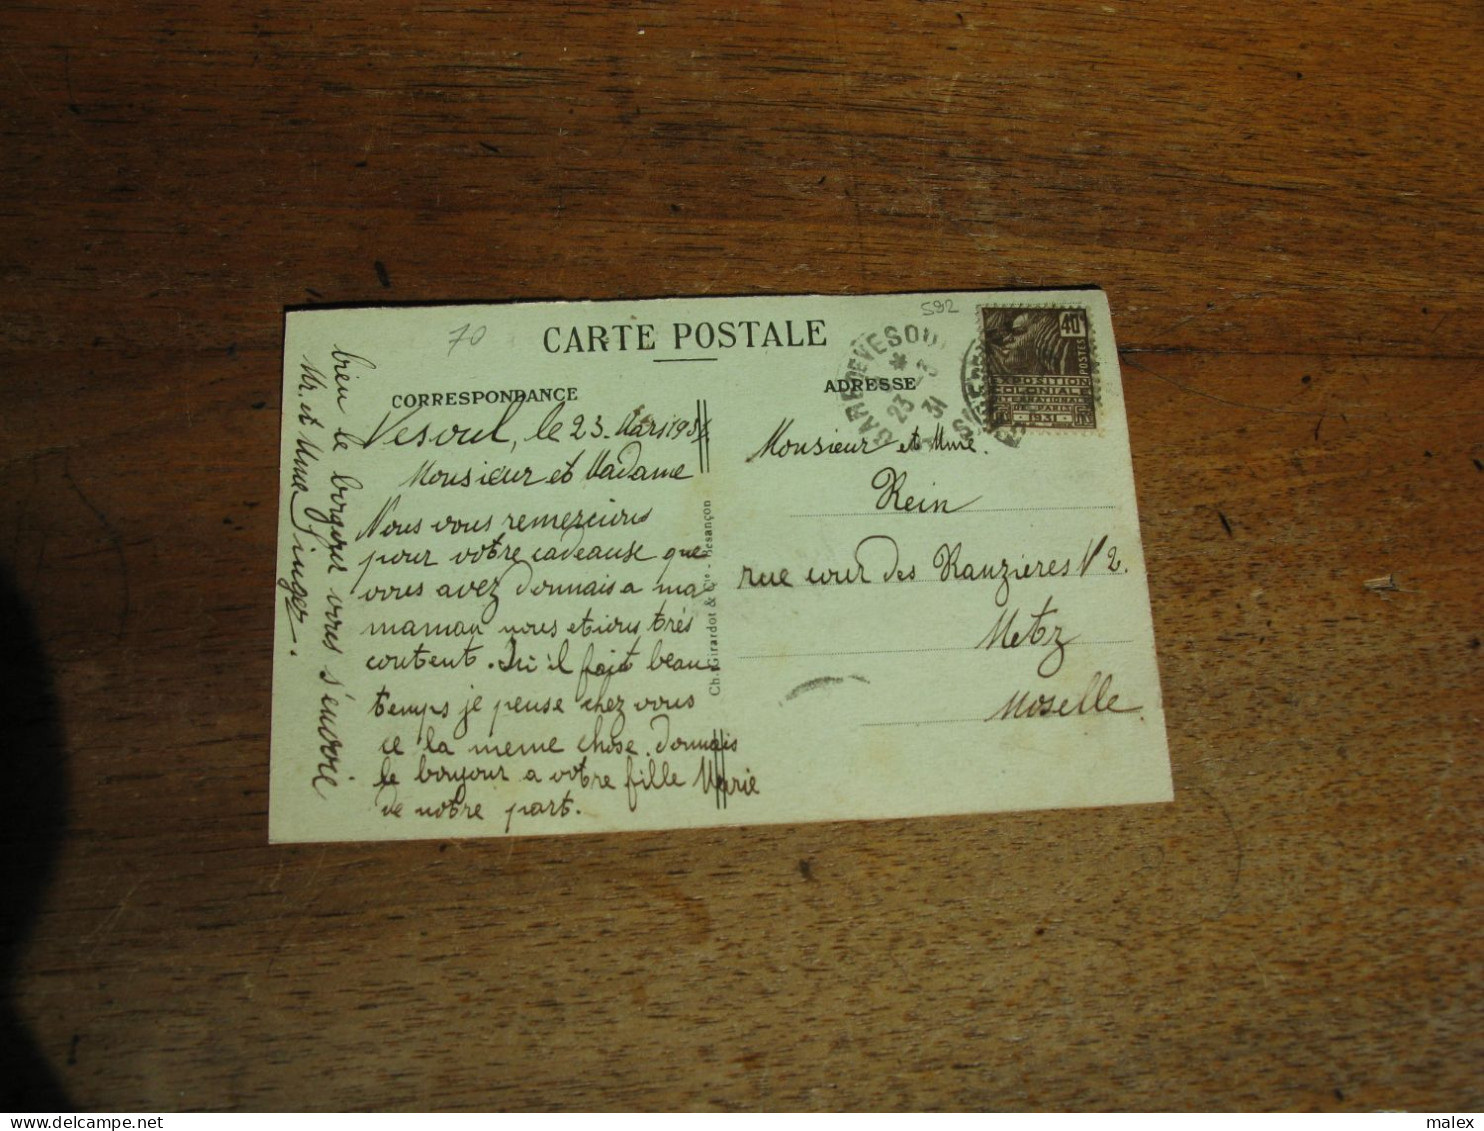 70
CARTE POSTALE
592
CORRESPONDANCE
ADRESSE
GARE DE VESOUL
23 - 3
31
40c
POSTES
EXPOSITION
COLONIALE
INTERNATIONALE
DE PARIS
1931
Vesoul, le 23. Mars 1931
Monsieur et Madame
Nous vous remercions
pour votre cadeause que
vous avez donnais a ma
maman nous etions très
content. Ici il fait beau
temps je pense chez vous
ce la meme chose. Donnais
le bonjour a votre fille Marie
de notre part.
bien le bonjour vous s'envoie
Mr. et Mme Singer.
Ch. Girardot & Cie - Besançon
Monsieur et Mme.
Rein
rue cour des Ranzières N 2.
Metz
Moselle.
malex